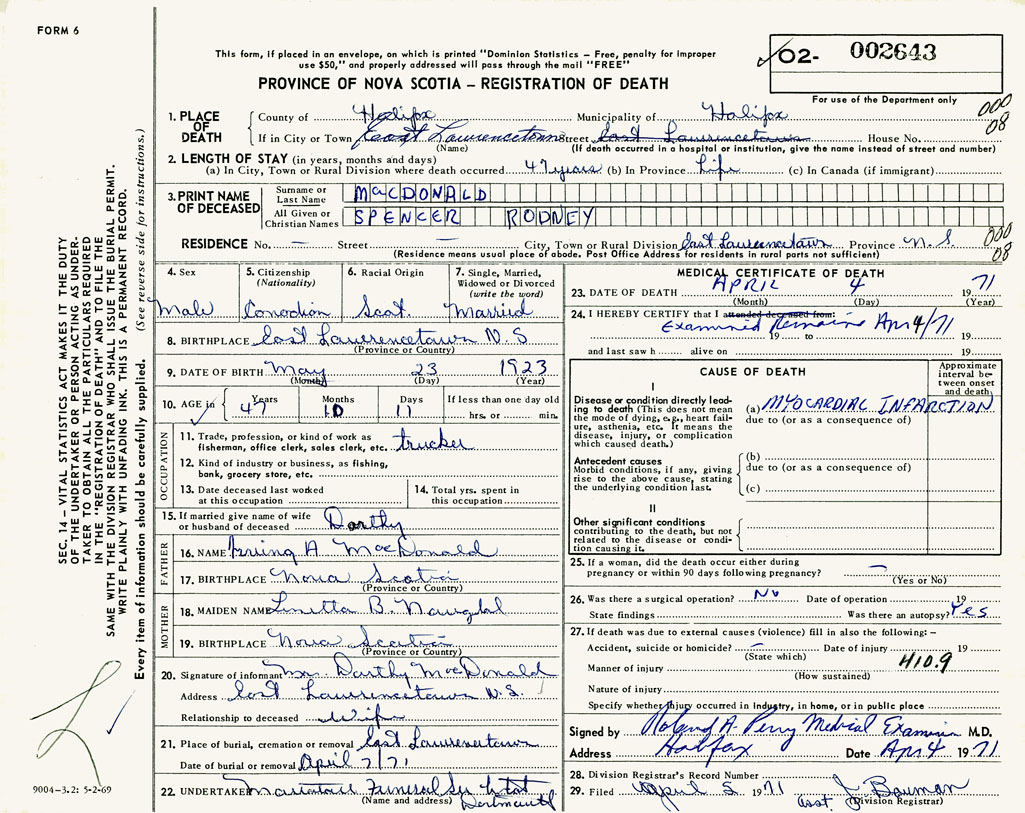 FORM 6
This form, if placed in an envelope, on which is printed "Dominion Statistics – Free, penalty for improper
use $50," and properly addressed will pass through the mail "FREE"
PROVINCE OF NOVA SCOTIA – REGISTRATION OF DEATH
02- 002643
For use of the Department only
1. PLACE OF DEATH
County of Halifax Municipality of Halifax 000
If in City or Town East Lawrencetown Street East Lawrencetown House No. 08
(Name) (If death occurred in a hospital or institution, give the name instead of street and number)
2. LENGTH OF STAY (in years, months and days)
(a) In City, Town or Rural Division where death occurred 47 years (b) In Province Life (c) In Canada (if immigrant)
3. PRINT NAME OF DECEASED
Surname or Last Name MacDONALD
All Given or Christian Names SPENCER RODNEY
RESIDENCE No. — Street — City, Town or Rural Division East Lawrencetown Province N.S. 000 08
(Residence means usual place of abode. Post Office Address for residents in rural parts not sufficient)
4. Sex 5. Citizenship (Nationality) 6. Racial Origin 7. Single, Married, Widowed or Divorced (write the word)
Male Canadian Scot. Married
8. BIRTHPLACE East Lawrencetown N.S
(Province or Country)
9. DATE OF BIRTH May 23 1923
(Month) (Day) (Year)
10. AGE in Years Months Days If less than one day old
47 10 11 hrs. or min.
OCCUPATION
11. Trade, profession, or kind of work as
fisherman, office clerk, sales clerk, etc. trucker
12. Kind of industry or business, as fishing,
bank, grocery store, etc.
13. Date deceased last worked
at this occupation
14. Total yrs. spent in
this occupation
15. If married give name of wife
or husband of deceased Dorthy
FATHER
16. NAME Irving A MacDonald
17. BIRTHPLACE Nova Scotia
(Province or Country)
MOTHER
18. MAIDEN NAME B.
19. BIRTHPLACE Nova Scotia
(Province or Country)
20. Signature of informant Mrs Dorthy MacDonald
Address East Lawrencetown N.S.
Relationship to deceased Wife
21. Place of burial, cremation or removal East Lawrencetown
Date of burial or removal April 7/71
22. UNDERTAKER Funeral
(Name and address) Dartmouth
MEDICAL CERTIFICATE OF DEATH
23. DATE OF DEATH APRIL 4 1971
(Month) (Day) (Year)
24. I HEREBY CERTIFY that I attended deceased from:
Examined Remains Apr 4/71
19 to 19
and last saw h alive on 19
CAUSE OF DEATH
Approximate interval between onset and death
I
Disease or condition directly leading to death (This does not mean the mode of dying, e.g., heart failure, asthenia, etc. It means the disease, injury, or complication which caused death.)
(a) MYOCARDIAL INFARCTION
due to (or as a consequence of)
Antecedent causes
Morbid conditions, if any, giving rise to the above cause, stating the underlying condition last.
(b)
due to (or as a consequence of)
(c)
II
Other significant conditions
contributing to the death, but not related to the disease or condition causing it.
25. If a woman, did the death occur either during
pregnancy or within 90 days following pregnancy? —
(Yes or No)
26. Was there a surgical operation? No Date of operation 19
State findings Was there an autopsy? Yes
27. If death was due to external causes (violence) fill in also the following: –
Accident, suicide or homicide? — Date of injury 19
(State which) 410.9
Manner of injury
(How sustained)
Nature of injury
Specify whether injury occurred in Industry, in home, or in public place
Signed by Roland A. Perry Medical Examiner M.D.
Address Halifax Date Apr 4 1971
28. Division Registrar's Record Number
29. Filed April 5 1971 asst. J. Bauman
(Division Registrar)
SEC. 14 – VITAL STATISTICS ACT MAKES IT THE DUTY
OF THE UNDERTAKER OR PERSON ACTING AS UNDER-
TAKER TO OBTAIN ALL THE PARTICULARS REQUIRED
IN THE "REGISTRATION OF DEATH" AND TO FILE THE
SAME WITH THE DIVISION REGISTRAR WHO SHALL ISSUE THE BURIAL PERMIT.
WRITE PLAINLY WITH UNFADING INK. THIS IS A PERMANENT RECORD.
Every item of information should be carefully supplied. (See reverse side for instructions.)
9004-3.2: 5-2-69